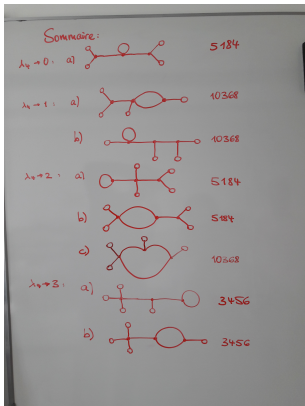 Sommaire:
λ₄→0: a) 5184
λ₄→1: a) 10368
b) 10368
λ₄→2: a) 5184
b) 5184
c) 10368
λ₄→3: a) 3456
b) 3456